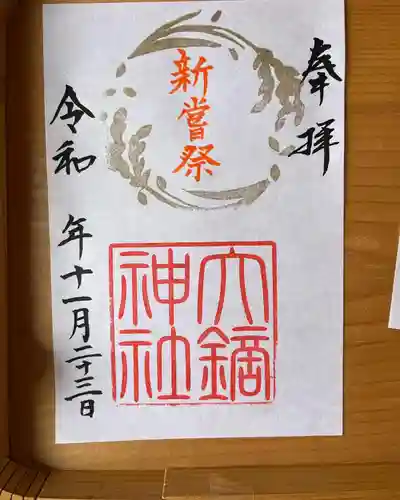 奉拝
新嘗祭
大鏑
神社
令和 年十一月二十三日